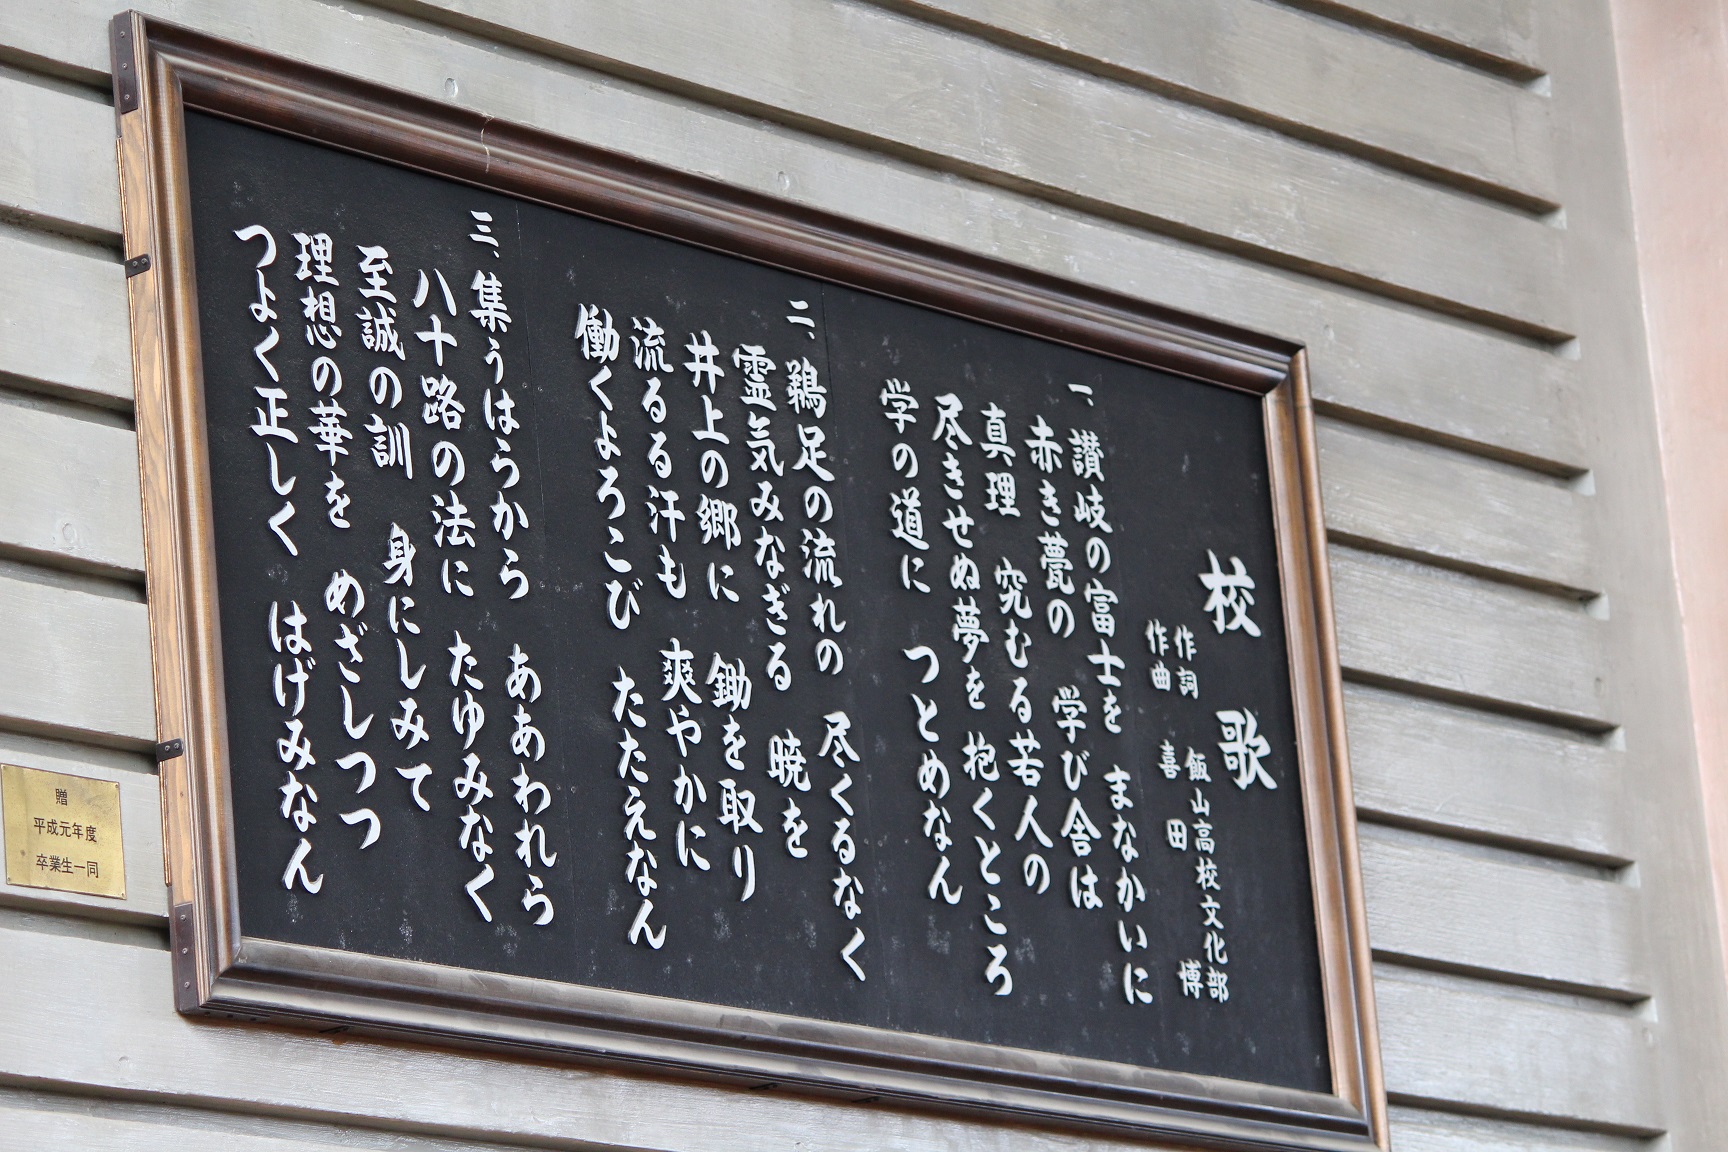 校歌
作詞 飯山高校文化部
作曲 喜田 博
一、讃岐の富士を まなかいに
赤き甍の 学び舎は
真理 究むる若人の
尽きせぬ夢を 抱くところ
学の道に つとめなん
二、鵜足の流れの 尽くるなく
霊気みなぎる 暁を
井上の郷に 鋤を取り
流るる汗も 爽やかに
働くよろこび たたえなん
三、集うはらから ああわれら
八十路の法に たゆみなく
至誠の訓 身にしみて
理想の華を めざしつつ
つよく正しく はげみなん
贈
平成元年度
卒業生一同